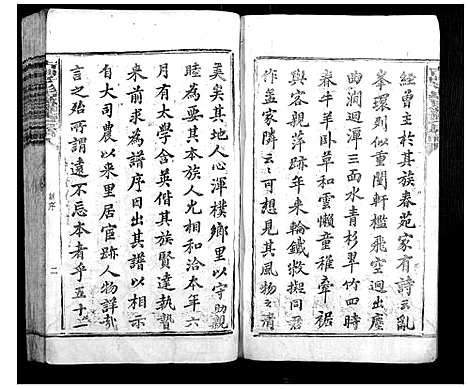 經曾主於其族春苑家有詩云亂
峯環列似重闉軒檻飛空迴出塵
曲澗迴潭三面水青杉翠竹四時
春牛羊臥草和雲懶童稚牽裾
與客親萍跡年來輪鐵
作孟家隣云云可想見其風物之清
美矣其地人心渾樸鄉里以守助親
睦為要其本族人尤相和洽本年六
月有太學含英偕其族賢達執贄
來前求為譜序因出其譜以相示
自大司農以來里居宦跡人物詳哉
言之殆所謂遠不忘本者乎五十一
序
二